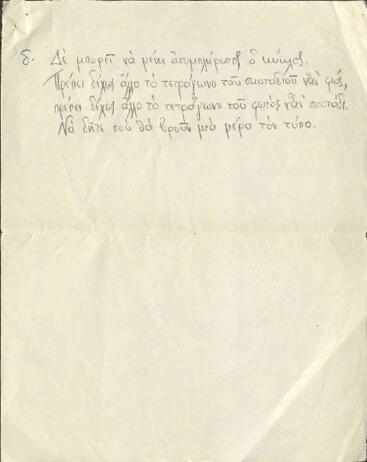 δ. Δὲ μπορεῖ νὰ μένει ἀσυμπλήρωτος ὁ κύκλος.
Πρέπει δίχως ἄλλο τὸ τετράγωνο τοῦ σκοταδιοῦ νἆν' φῶς,
πρέπει δίχως ἄλλο τὸ τετράγωνο τοῦ φωτὸς νἆν' σκοτάδι.
Νὰ δῆτε ποὺ θὰ βροῦν μιὰ μέρα τὸν τύπο.